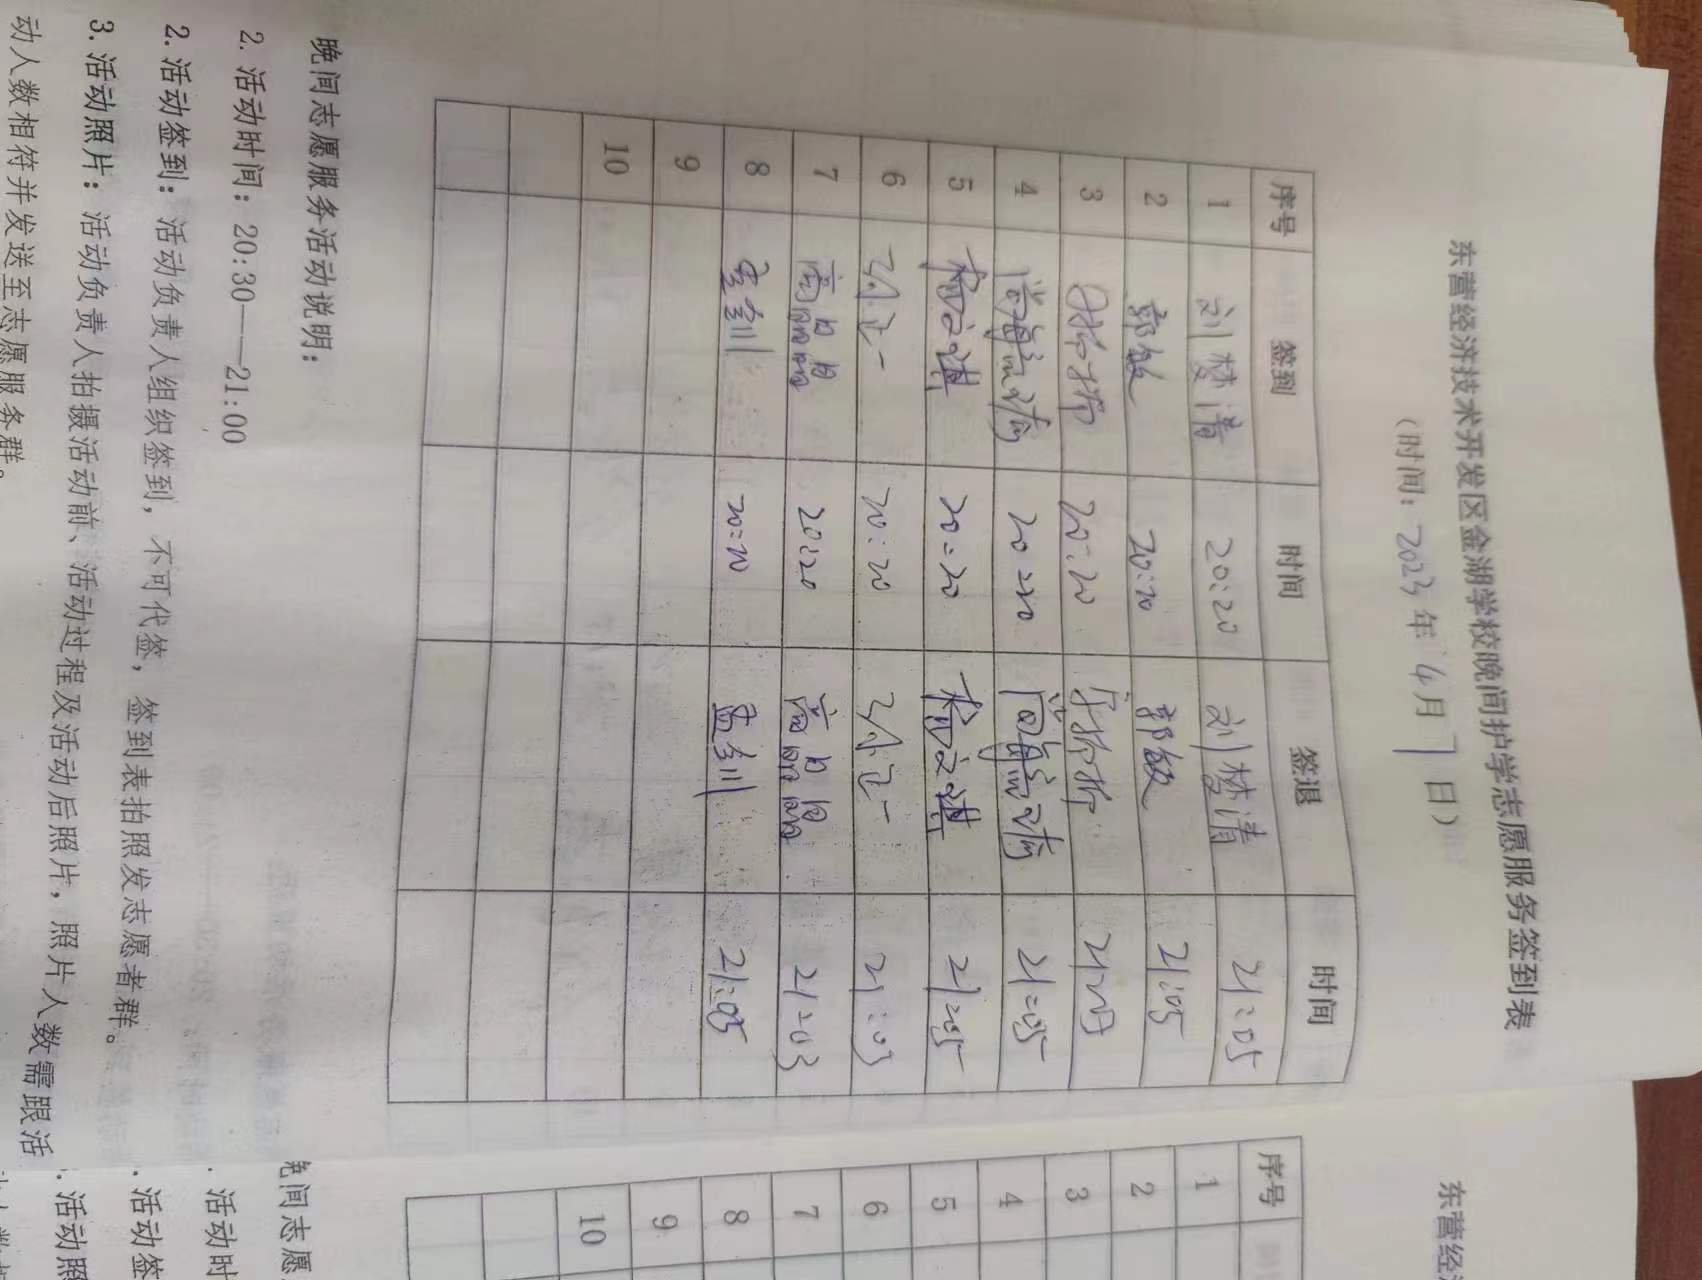 东营经济技术开发区金湖学校晚间护学志愿服务签到表
(时间: 2023 年 4 月 7 日)
序号 签到 时间 签退 时间
1 刘梦清 20:20 刘梦清 21:05
2 郭敏 20:20 郭敏 21:05
3 20:20 21:05
4 20:20 21:05
5 20:20 21:05
6 20:20 21:03
7 高晶晶 20:20 高晶晶 21:03
8 孟钏 20:20 孟钏 21:05
9
10
晚间志愿服务活动说明:
2. 活动时间: 20:30——21:00
2. 活动签到: 活动负责人组织签到, 不可代签, 签到表拍照发志愿者群。
3. 活动照片: 活动负责人拍摄活动前、活动过程及活动后照片, 照片人数需跟活
动人数相符并发送至志愿服务群。
东营经
序号
1
2
3
4
5
6
7
8
9
10
晚间志愿
. 活动时
. 活动签
. 活动照